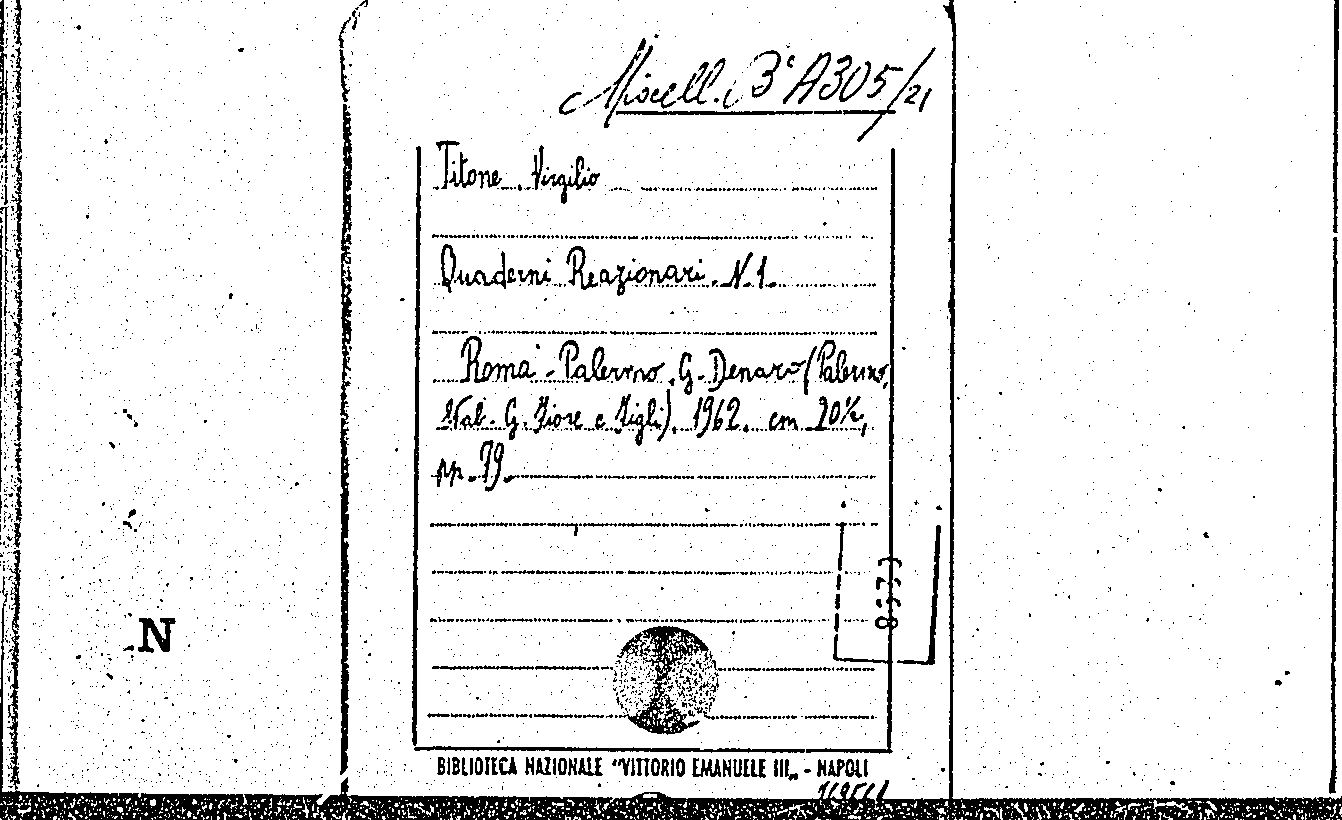 Miscell. B° A305/21
Titone Virgilio
Quaderni Reazionari. N.1.
Roma - Palermo. G. Denaro (Palermo,
Stab. G. Fiore e Figli). 1962. cm 20½,
pp. 79.
N
BIBLIOTECA NAZIONALE "VITTORIO EMANUELE III„ - NAPOLI